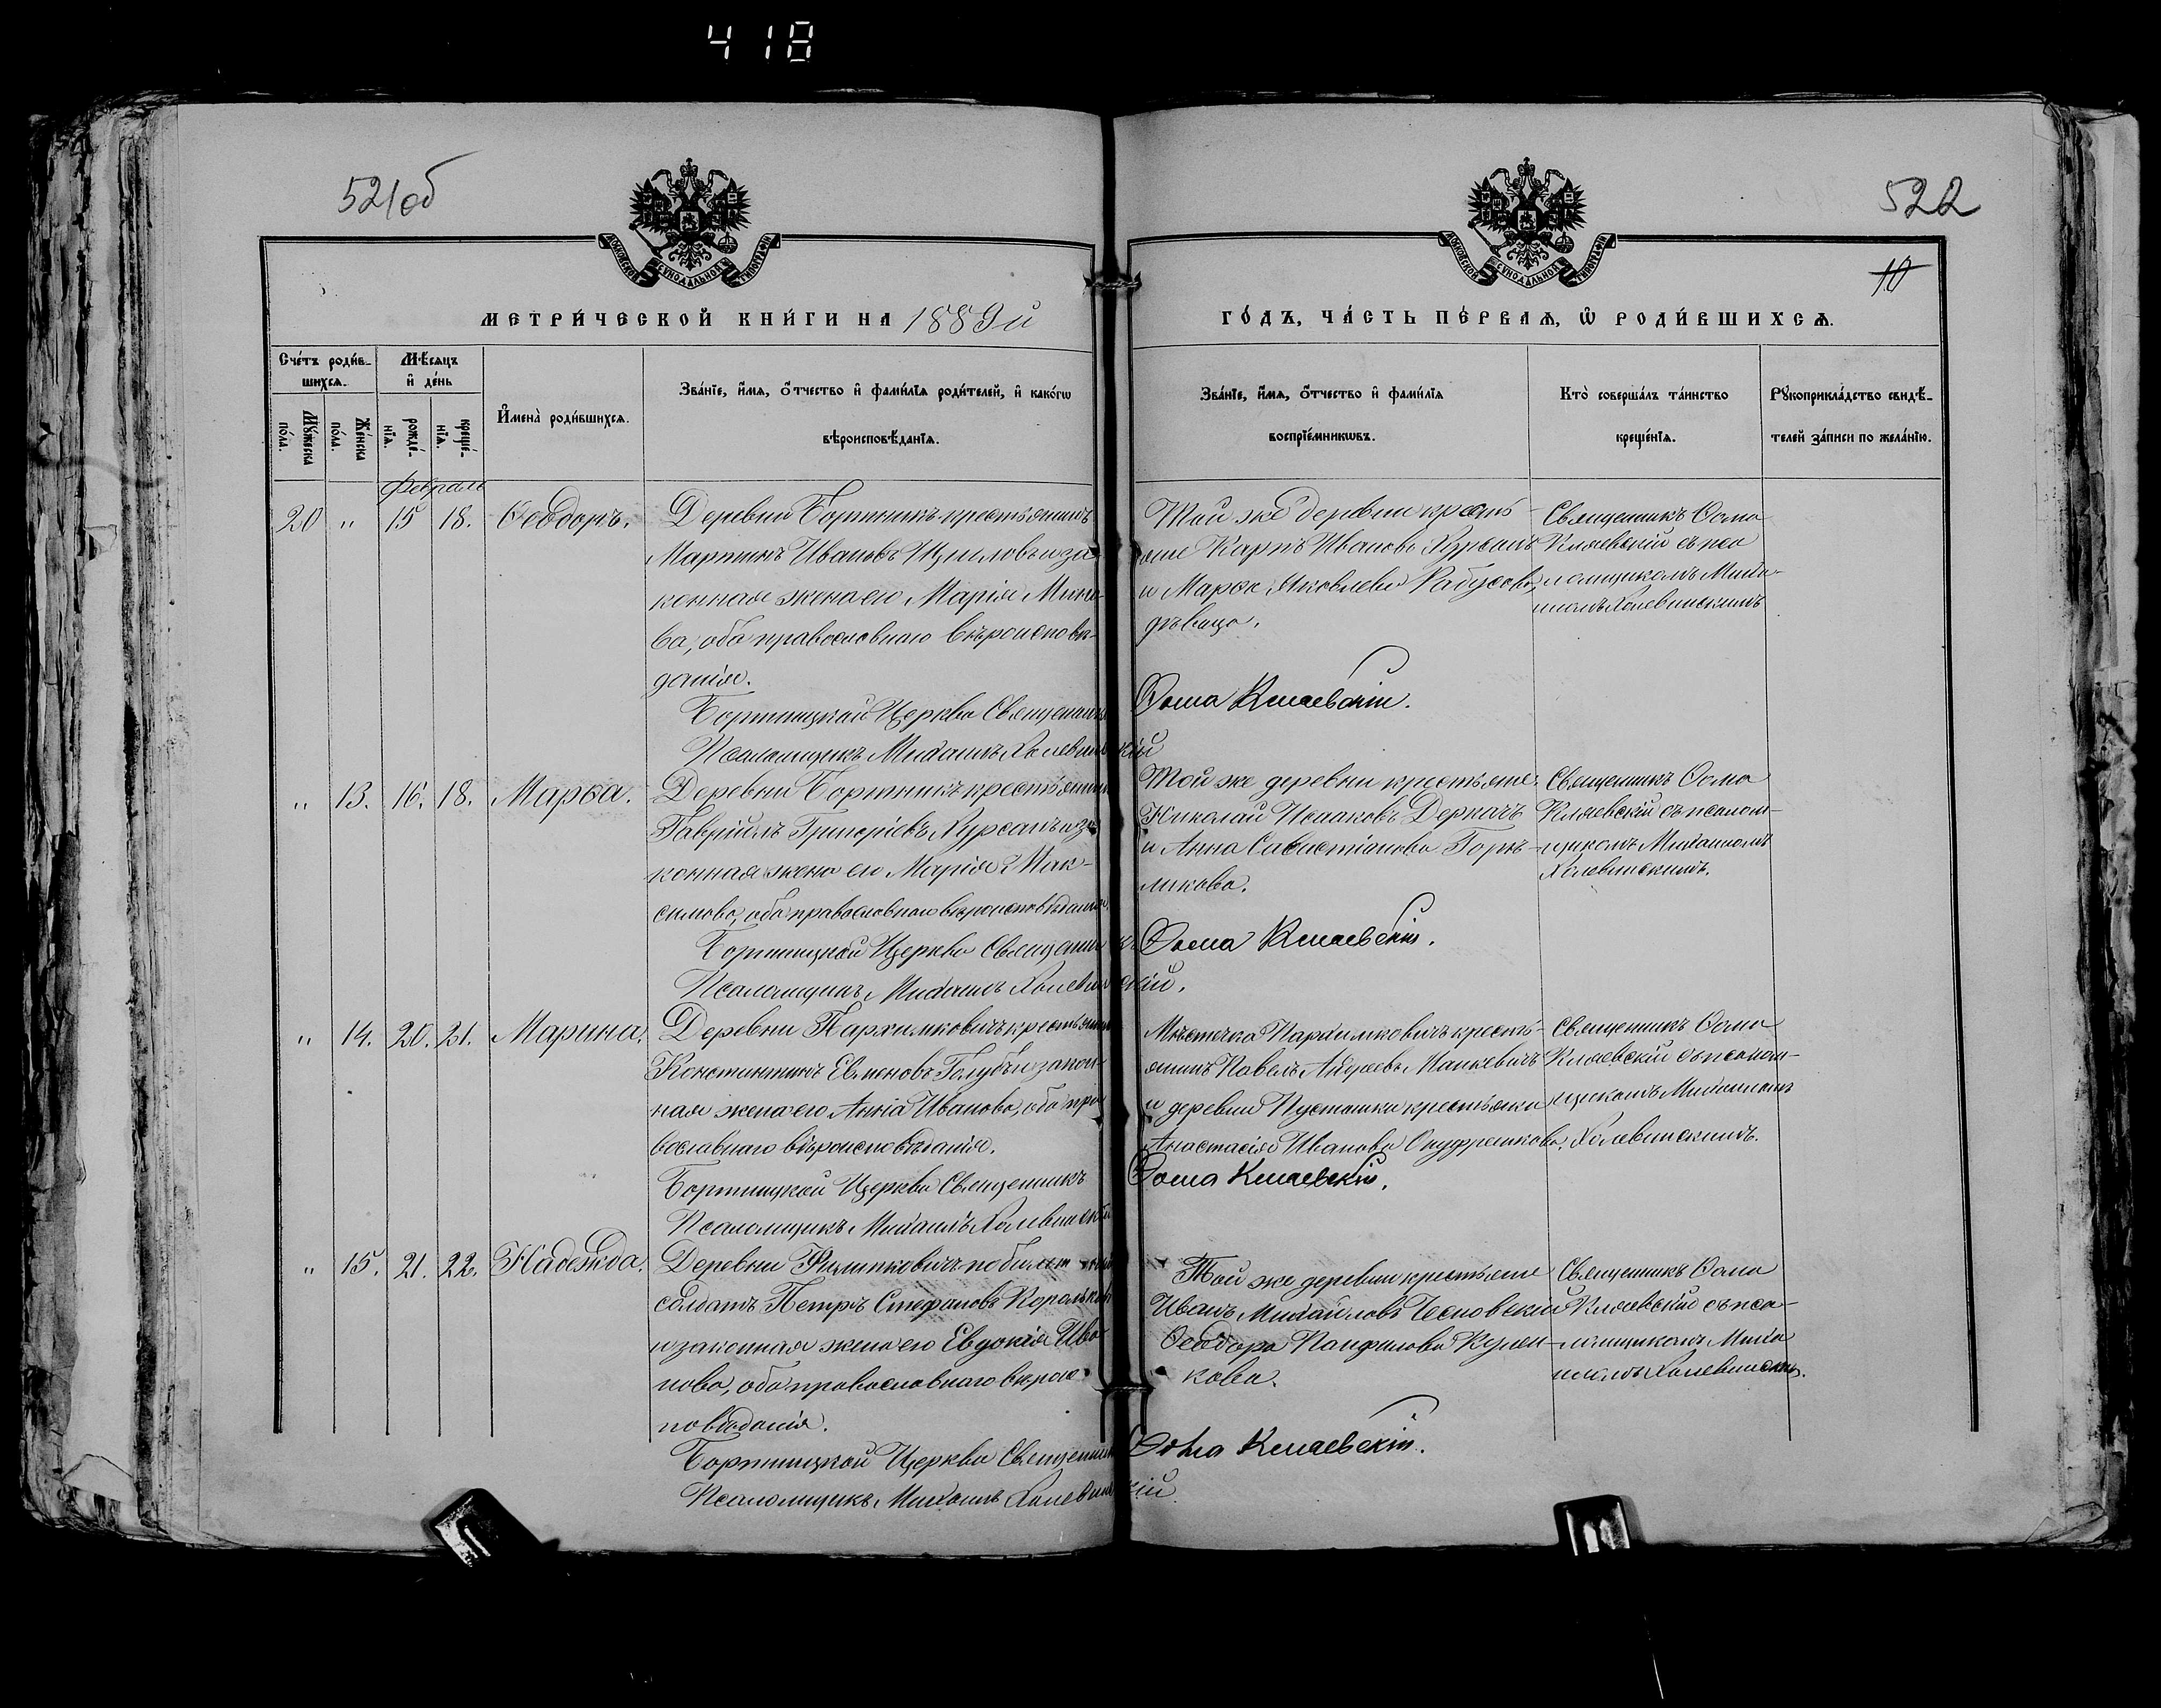 418
521об
522
10
МОСКОВСКОЙ СѴНОДАЛЬНОЙ ТИПОГРАФІИ
МОСКОВСКОЙ СѴНОДАЛЬНОЙ ТИПОГРАФІИ
МЕТРИ́ЧЕСКОЙ КНИ́ГИ НА 1889й
ГО́ДЪ, ЧА́СТЬ ПЕ́РВАѦ, Ѡ҆ РОДИ́ВШИХСѦ.
Сче́тъ роди́в-
шихсѧ.
Мꙋ́жеска по́ла.
Же́нска по́ла.
Мѣ́сѧцъ
и҆ де́нь
рожде́-
нїѧ.
креще́-
нїѧ.
И҆мена̀ роди́вшихсѧ.
Зва́нїе, и҆́мѧ, о҆́тчество и҆ фами́лїѧ роди́телей, и҆ како́гѡ
вѣроисповѣ́данїѧ.
Зва́нїе, и҆́мѧ, о҆́тчество и҆ фами́лїѧ
воспрїе́мникѡвъ.
Кто̀ соверша́лъ та́инство
креще́нїѧ.
Рꙋкоприкла́дство свидѣ́-
телей за́писи по жела́нїю.
Февраль
20 " 15 18. Ѳеодоръ.
Деревни Бортникъ крестьянинъ
Мартинъ Ивановъ и за
конная жена его Марія Мино-
ва, оба православнаго вѣроисповѣ-
данія.
Бортницкой Церкви Священникъ
Псаломщикъ Михаилъ Холевинскій
Той же деревни кресть-
яне Карпъ Ивановъ Хурсанъ
и Марѳа Яковлева Рабусова,
дѣвица.
Ѳома Кляевскій.
Священникъ Ѳома
Кляевскій съ пса
ломщикомъ Миха-
иломъ Холевинскимъ
" 13. 16. 18. Марѳа.
Деревни Бортникъ крестьянинъ
Гавріилъ Григоріевъ Хурсанъ и за
конная жена его Марія Мак-
симова, оба православнаго вѣроисповѣданія.
Бортницкой Церкви Священникъ
Псаломщикъ Михаилъ Холевинскій.
Той же деревни крестьяне
Николай Исааковъ Деркачъ
и Анна Савистіанова Горѣ-
ликова.
Ѳома Кляевскій.
Священникъ Ѳома
Кляевскій съ псалом-
щикомъ Михаиломъ
Холевинскимъ.
" 14. 20. 21. Марина.
Деревни Пархимковичъ крестьянинъ
Константинъ Евменовъ Голубъ и закон-
ная жена его Анна Иванова, оба пра
вославнаго вѣроисповѣданія.
Бортницкой Церкви Священникъ
Псаломщикъ Михаилъ Холевинскій
Мѣстечка Пархимковичъ кресть-
янинъ Павелъ Андреевъ Манкевичъ
и деревни Пустошки крестьянка
Анастасія Иванова Онуфренкова.
Ѳома Кляевскій.
Священникъ Ѳома
Кляевскій съ псалом-
щикомъ Михаиломъ
Холевинскимъ.
" 15. 21. 22. Надежда.
Деревни Филипковичъ по билетный
солдатъ Петръ Стефановъ Корольковъ
и законная жена его Евдокія Ива
нова, оба православнаго вѣрои
повѣданія.
Бортницкой Церкви Священникъ
Псаломщикъ Михаилъ Холевинскій
Той же деревни крестьяне
Иванъ Михайловъ Чесновскій
Ѳеодора Панфилова Кулен-
кова.
Ѳома Кляевскій.
Священникъ Ѳома
Кляевскій съ пса-
ломщикомъ Миха
иломъ Холевинскимъ.